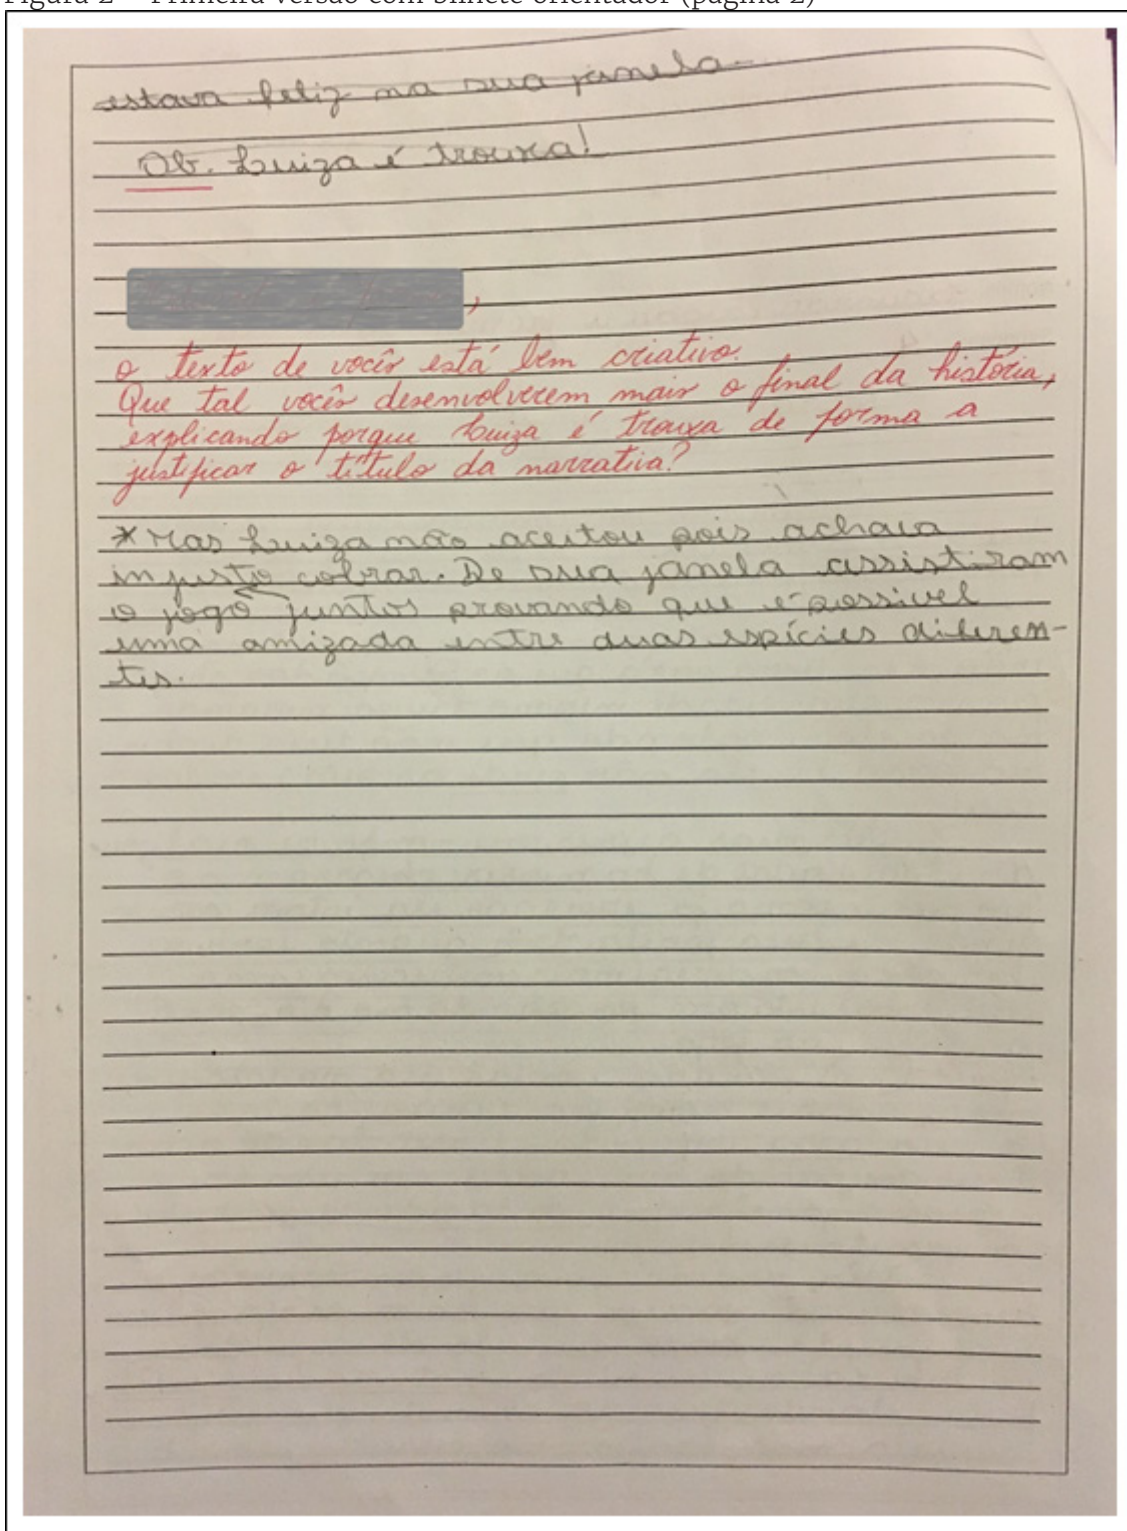 Figura 2 – Primeira versão com bilhete orientador (página 2)
estava feliz na sua janela.
Ob. Luiza é trouxa!
,
o texto de vocês está bem criativo.
Que tal vocês desenvolverem mais o final da história,
explicando porque Luiza é trouxa de forma a
justificar o título da narrativa?
*Mas Luiza não aceitou pois achava
injusto cobrar. De sua janela assistiram
o jogo juntos provando que é possivel
uma amizada entre duas espícies diferen-
tes.